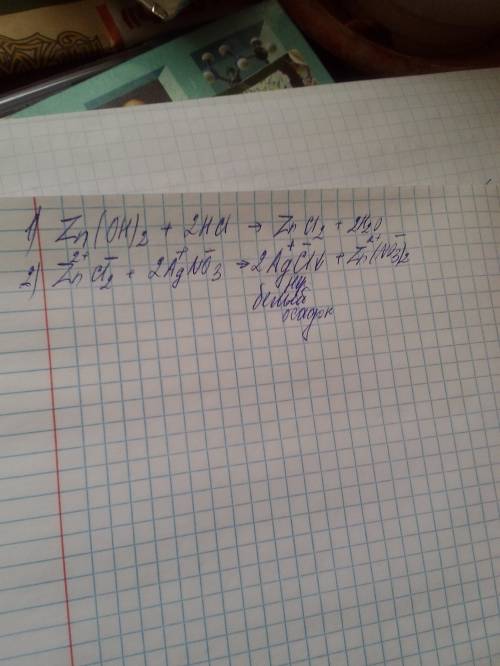 1) Zn(OH)₂ + 2HCl → ZnCl₂ + 2H₂O
2) Zn²⁺Cl₂⁻ + 2Ag⁺NO₃⁻ → 2Ag⁺Cl⁻↓ + Zn²⁺(NO₃⁻)₂
белый
осадок